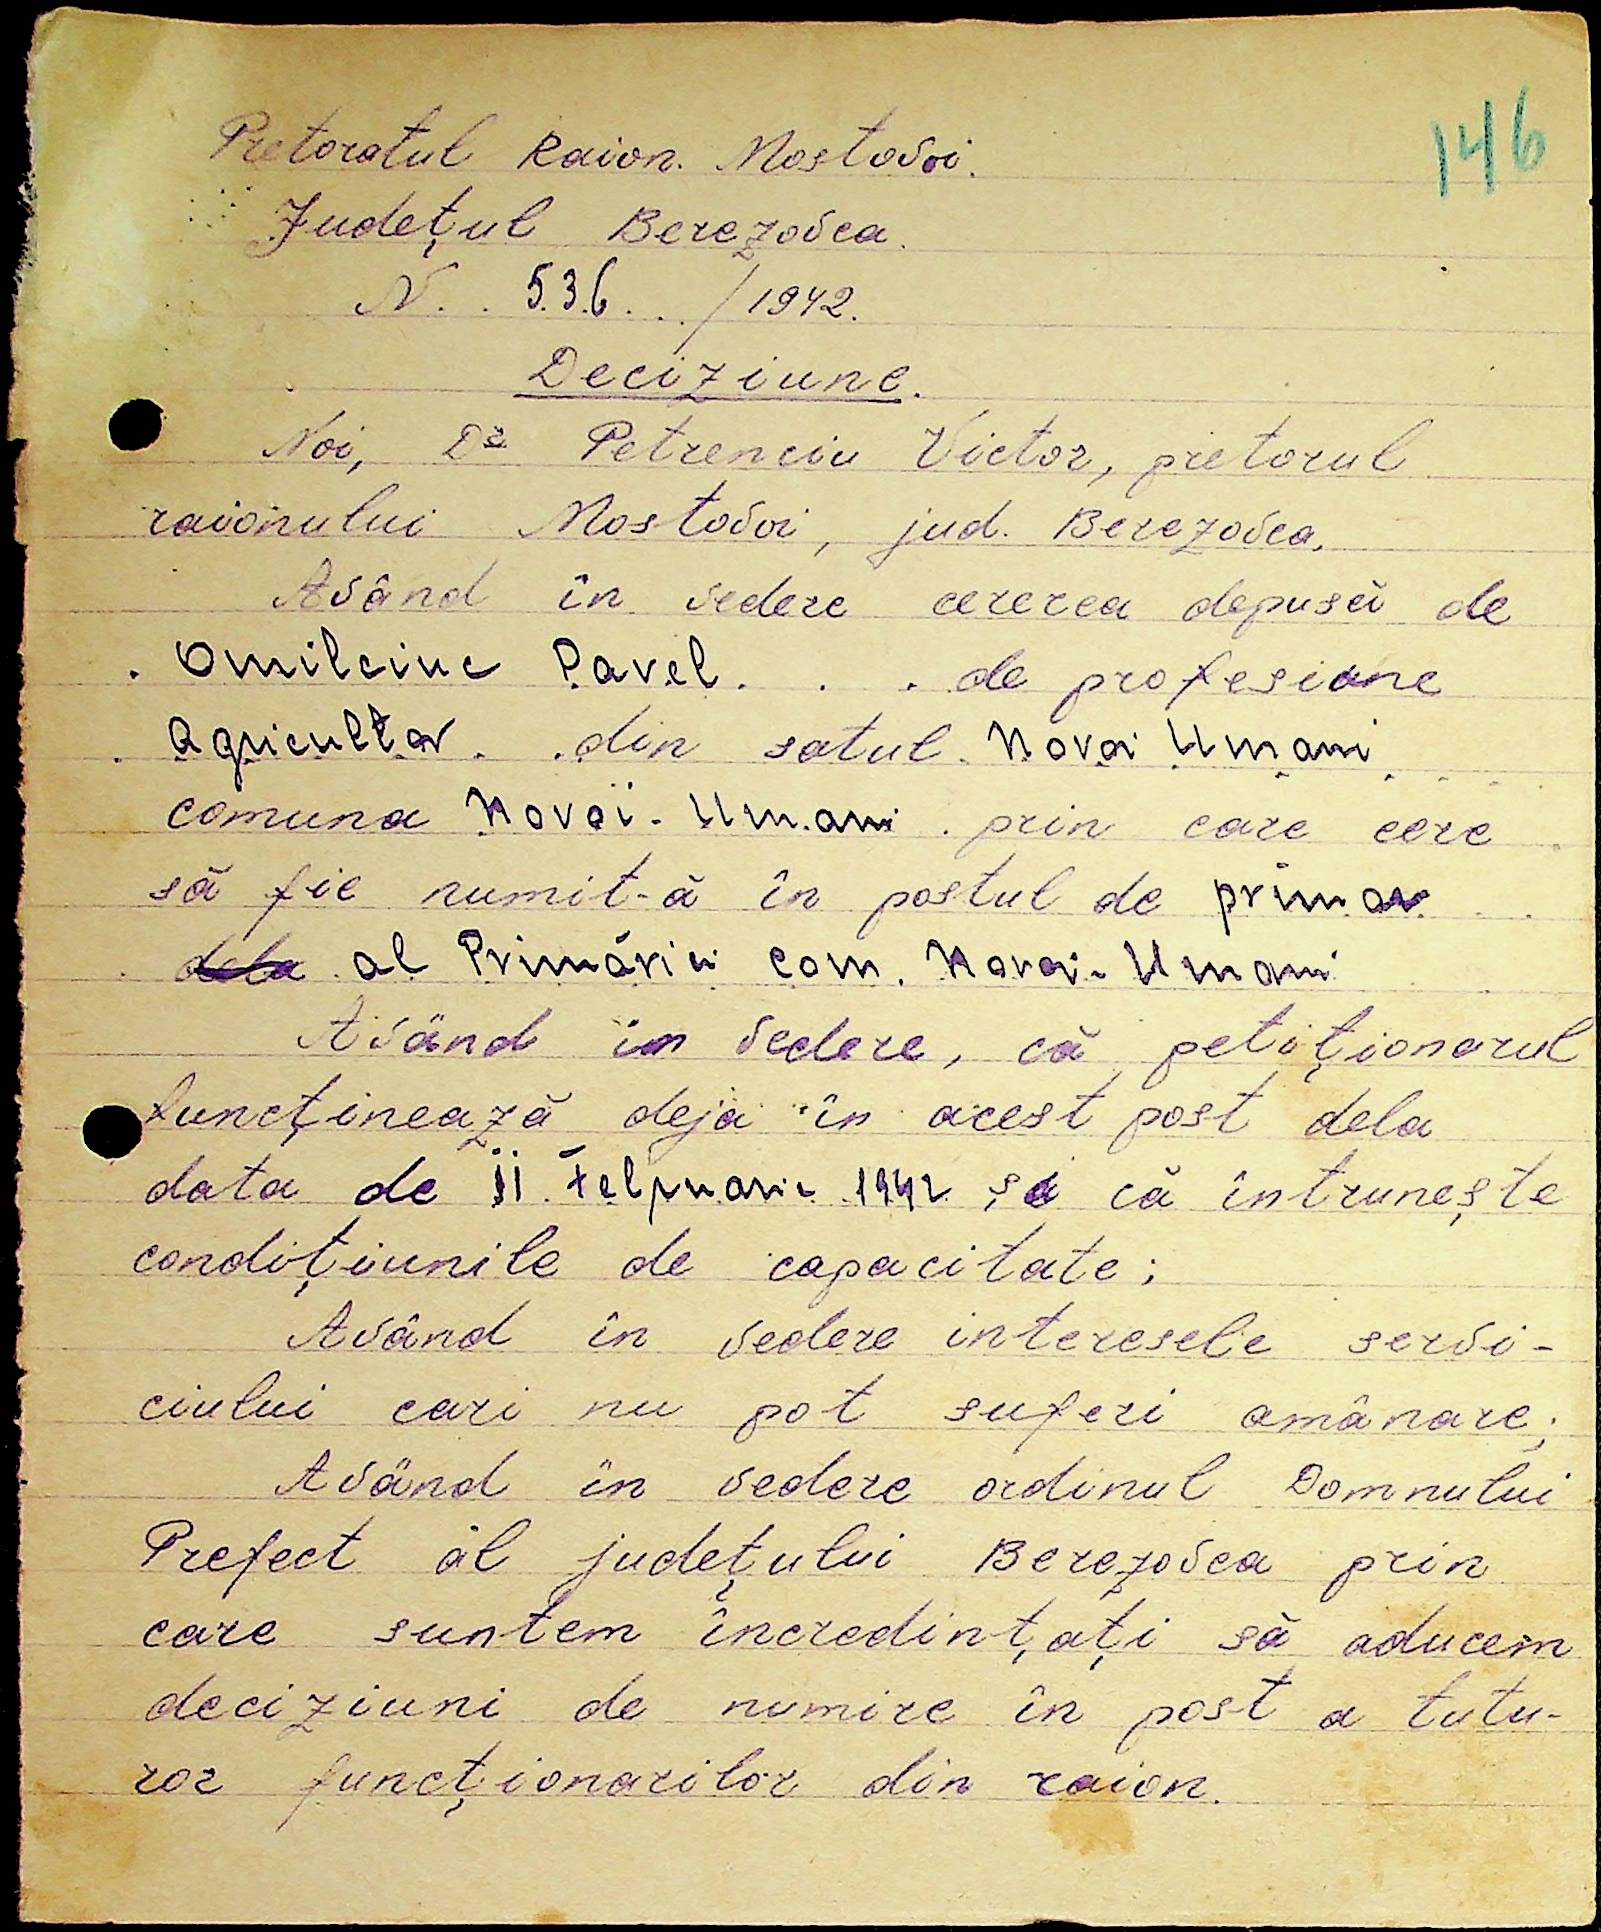 146
Pretoratul Raion. Mostovoi.
Județul Berezovca.
N. . 536 . . . / 1942.
Deciziune.
Noi, Dr Petrenciu Victor, pretorul
raionului Mostovoi, jud. Berezovca.
Având în vedere cererea depusă de
. Omilciuc Pavel . . . de profesiune
. Agricultor . . din satul . Novoi Umani
comuna Novoi - Umani . prin care cere
să fie numit-ă în postul de primar
dela al Primăriei com. Novoi - Umani
Având în vedere, că petiționarul
funcținează deja în acest post dela
data de 11 Februarie 1942 și că întrunește
condițiunile de capacitate;
Având în vedere interesele servi-
ciului cari nu pot suferi amânare;
Având în vedere ordinul Domnului
Prefect al județului Berezovca prin
care suntem încredințați să aducem
deciziuni de numire în post a tutu-
ror funcționarilor din raion.